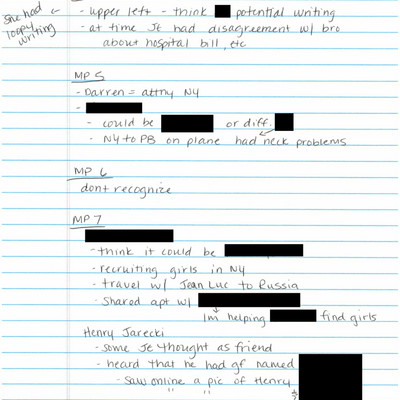 She had
loopy
writing
- upper left - think potential writing
- at time Je had disagreement w/ bro
about hospital bill, etc
MP 5
- Darren = attny NY
-
- could be or diff.
- NY to PB on plane had neck problems
MP 6
dont recognize
MP 7
- think it could be
- recruiting girls in NY
- travel w/ Jean Luc to Russia
- Shared apt w/
Im helping find girls
Henry Jarecki
- some Je thought as friend
- heard that he had gf named
- saw online a pic of Henry
" "